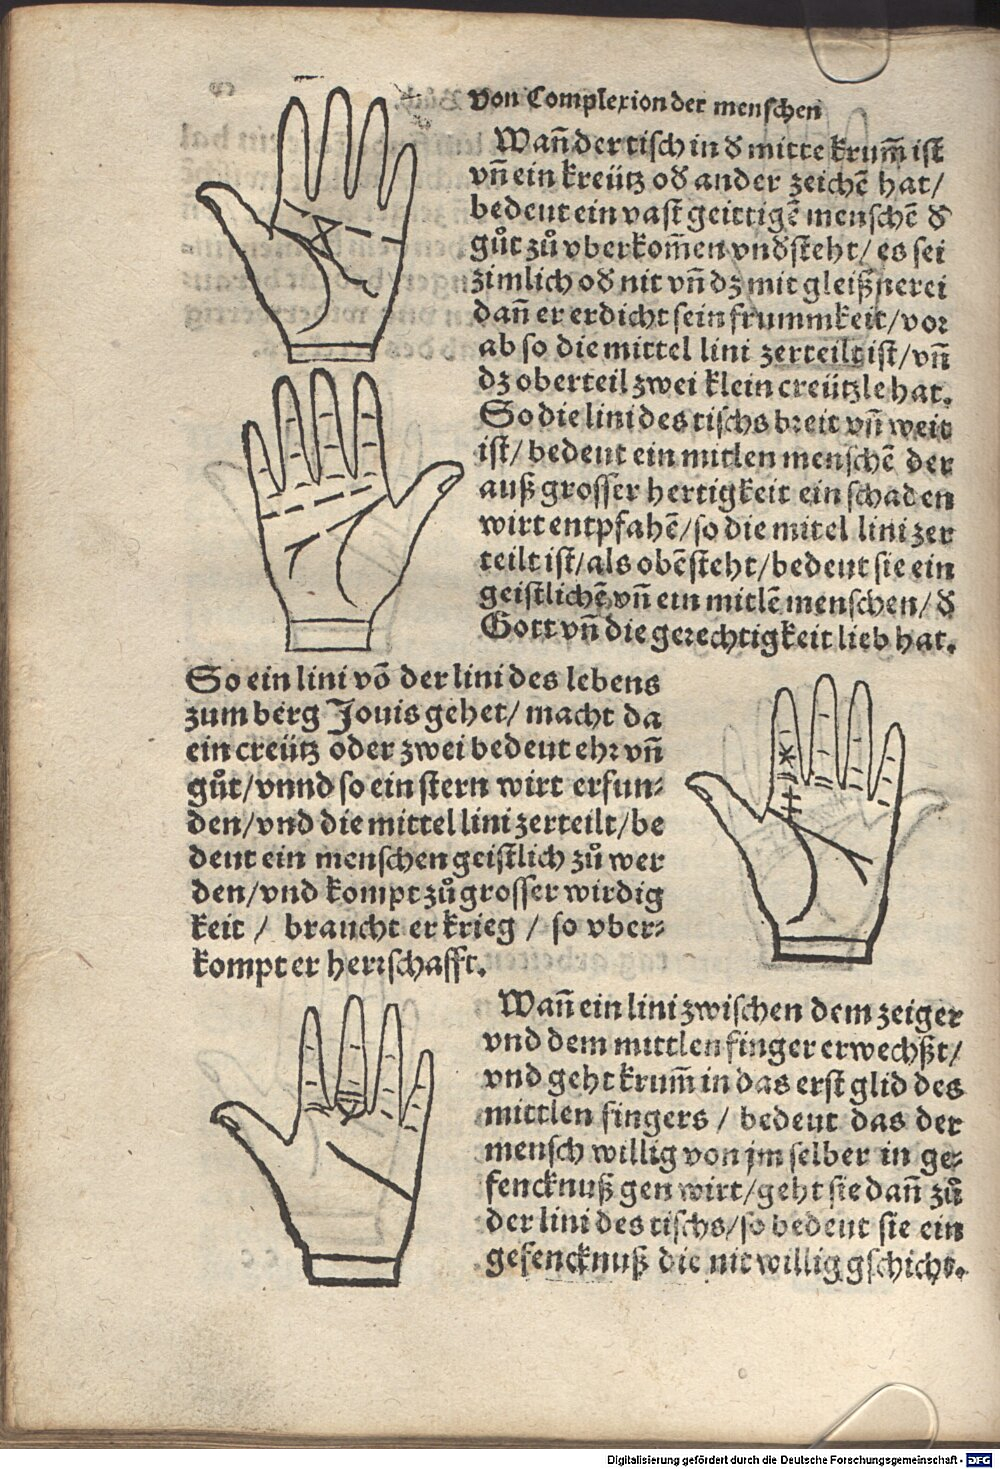 von Complexion der menschen
Wañ der tisch in d̕ mitte krum̃ ist
vñ ein kreütz od̕ ander zeichẽ hat/
bedeut ein vast geittigẽ menschẽ d̕
gůt zů vberkom̃en vnd̕steht/ es sei
zimlich od̕ nit vñ dz mit gleißnerei
dañ er erdicht sein frummkeit/ vor
ab so die mittel lini zerteilt ist/ vñ
dz oberteil zwei klein creützle hat.
So die lini des tischs breit vñ weit
ist/ bedeut ein mitlen menschẽ der
auß grosser hertigkeit ein schaden
wirt entpfahẽ/ so die mitel lini zer
teilt ist/ als obẽsteht/ bedeut sie ein
geistlichẽ vñ ein mitlẽ menschen/ d̕
Gott vñ die gerechtigkeit lieb hat.
So ein lini võ der lini des lebens
zum berg Jouis gehet/ macht da
ein creütz oder zwei bedeut ehr vñ
gůt/ vnnd so ein stern wirt erfun-
den/ vnd die mittel lini zerteilt/ be
deut ein menschen geistlich zů wer
den/ vnd kompt zů grosser wirdig
keit / braucht er krieg / so vber-
kompt er herrschafft.
Wañ ein lini zwischen dem zeiger
vnd dem mittlen finger erwechßt/
vnd geht krum̃ in das erst glid des
mittlen fingers / bedeut das der
mensch willig von jm selber in ge-
fencknuß gen wirt/ geht sie dañ zů
der lini des tischs/ so bedeut sie ein
gefencknuß die nit willig gschicht.
Digitalisierung gefördert durch die Deutsche Forschungsgemeinschaft - DFG